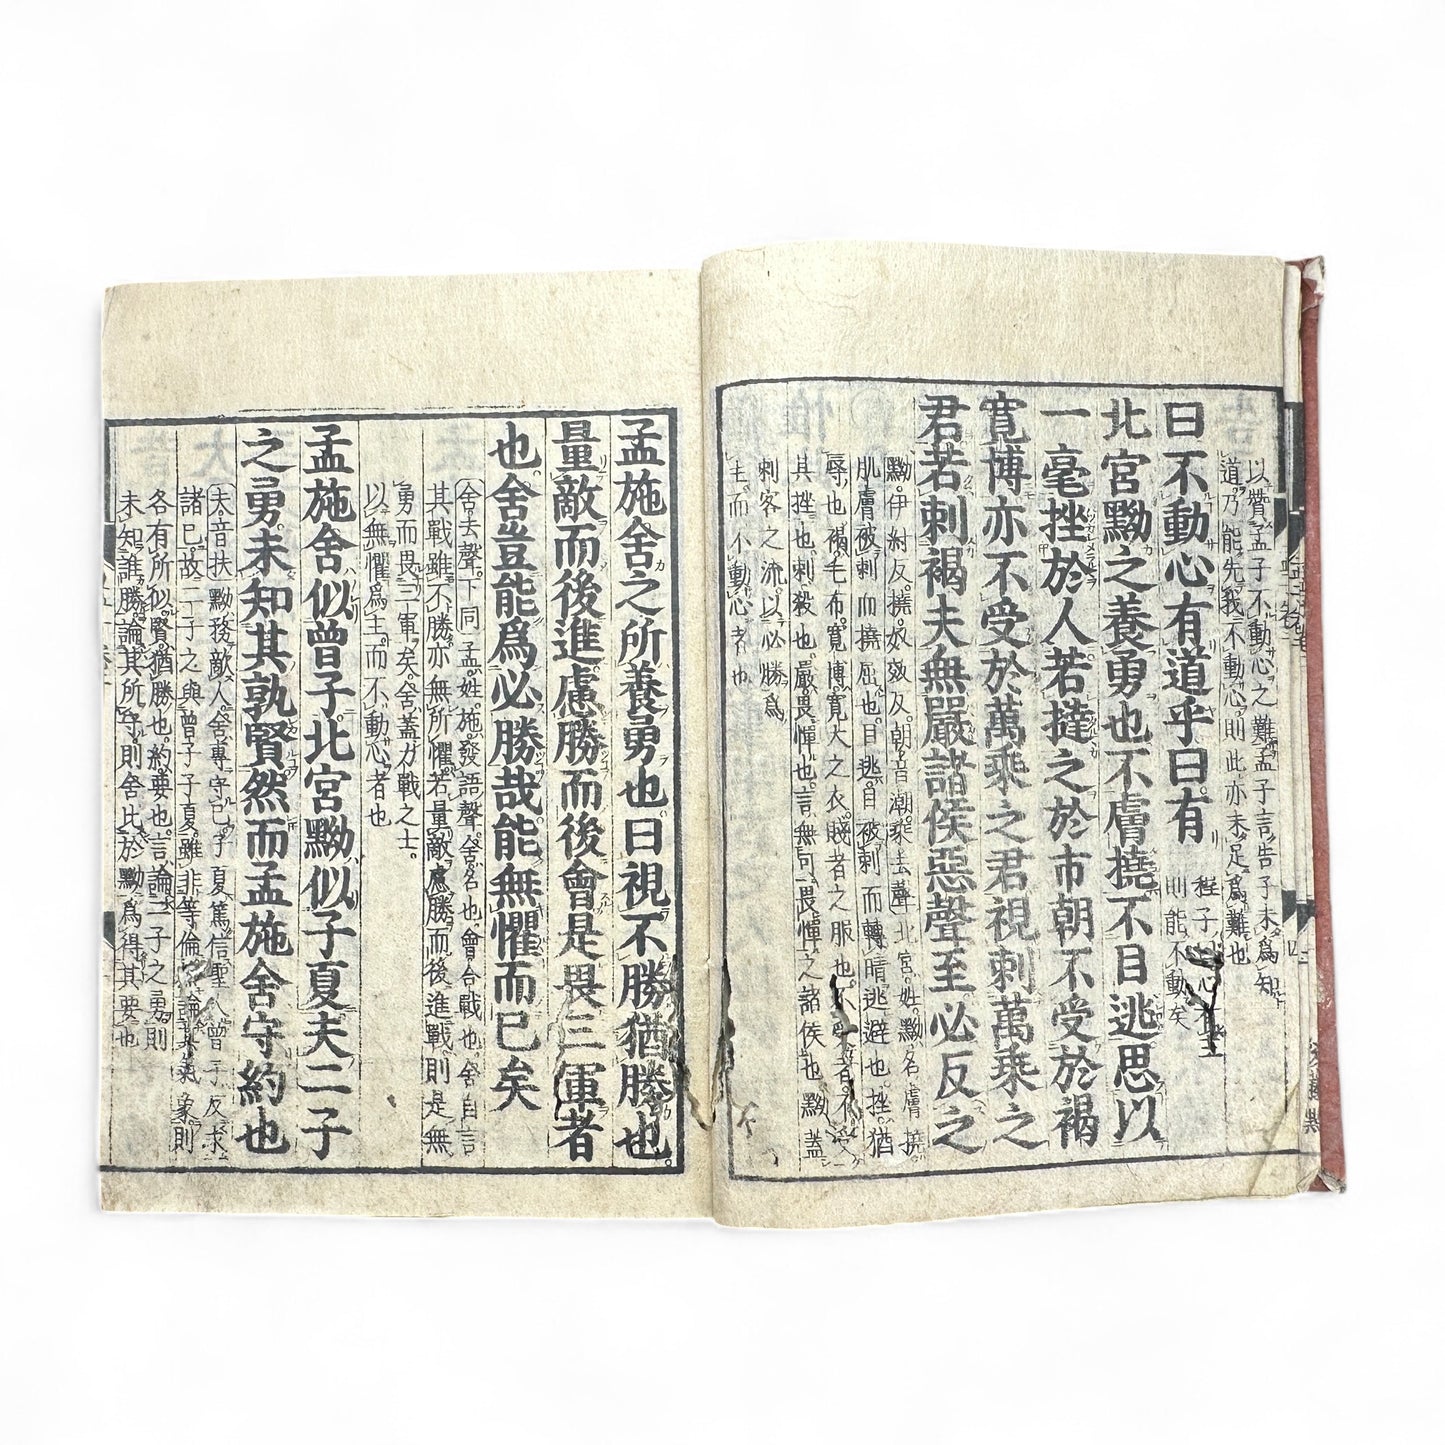 以贊孟子不動心之難孟子言告子未爲知
道乃能先我不動心則此亦未足爲難也
曰不動心有道乎曰有
程子
則能不動矣
北宮黝之養勇也不膚撓不目逃思以
一毫挫於人若撻之於市朝不受於褐
寬博亦不受於萬乘之君視刺萬乘之
君若刺褐夫無嚴諸侯惡聲至必反之
黝伊糾反撓奴效反朝音潮乘去聲北宮姓黝名膚撓
肌膚被刺而撓屈也目逃目被刺而轉睛逃避也挫猶
辱也褐毛布寬博寬大之衣賤者之服也不受者不受
其挫也刺殺也嚴畏憚也言無可畏憚之諸侯也黝蓋
刺客之流以必勝爲
主而不動心者也
孟施舍之所養勇也曰視不勝猶勝也
量敵而後進慮勝而後會是畏三軍者
也舍豈能爲必勝哉能無懼而已矣
舍去聲下同孟姓施發語聲舍名也會合戰也舍自言
其戰雖不勝亦無所懼若量敵慮勝而後進戰則是無
勇而畏三軍矣舍蓋力戰之士
以無懼爲主而不動心者也
孟施舍似曾子北宮黝似子夏夫二子
之勇未知其孰賢然而孟施舍守約也
夫音扶黝務敵人舍專守己子夏篤信聖人曾子反求
諸己故二子之與曾子子夏雖非等倫然論其氣象則
各有所似賢猶勝也約要也言論二子之勇則
未知誰勝論其所守則舍比於黝爲得其要也